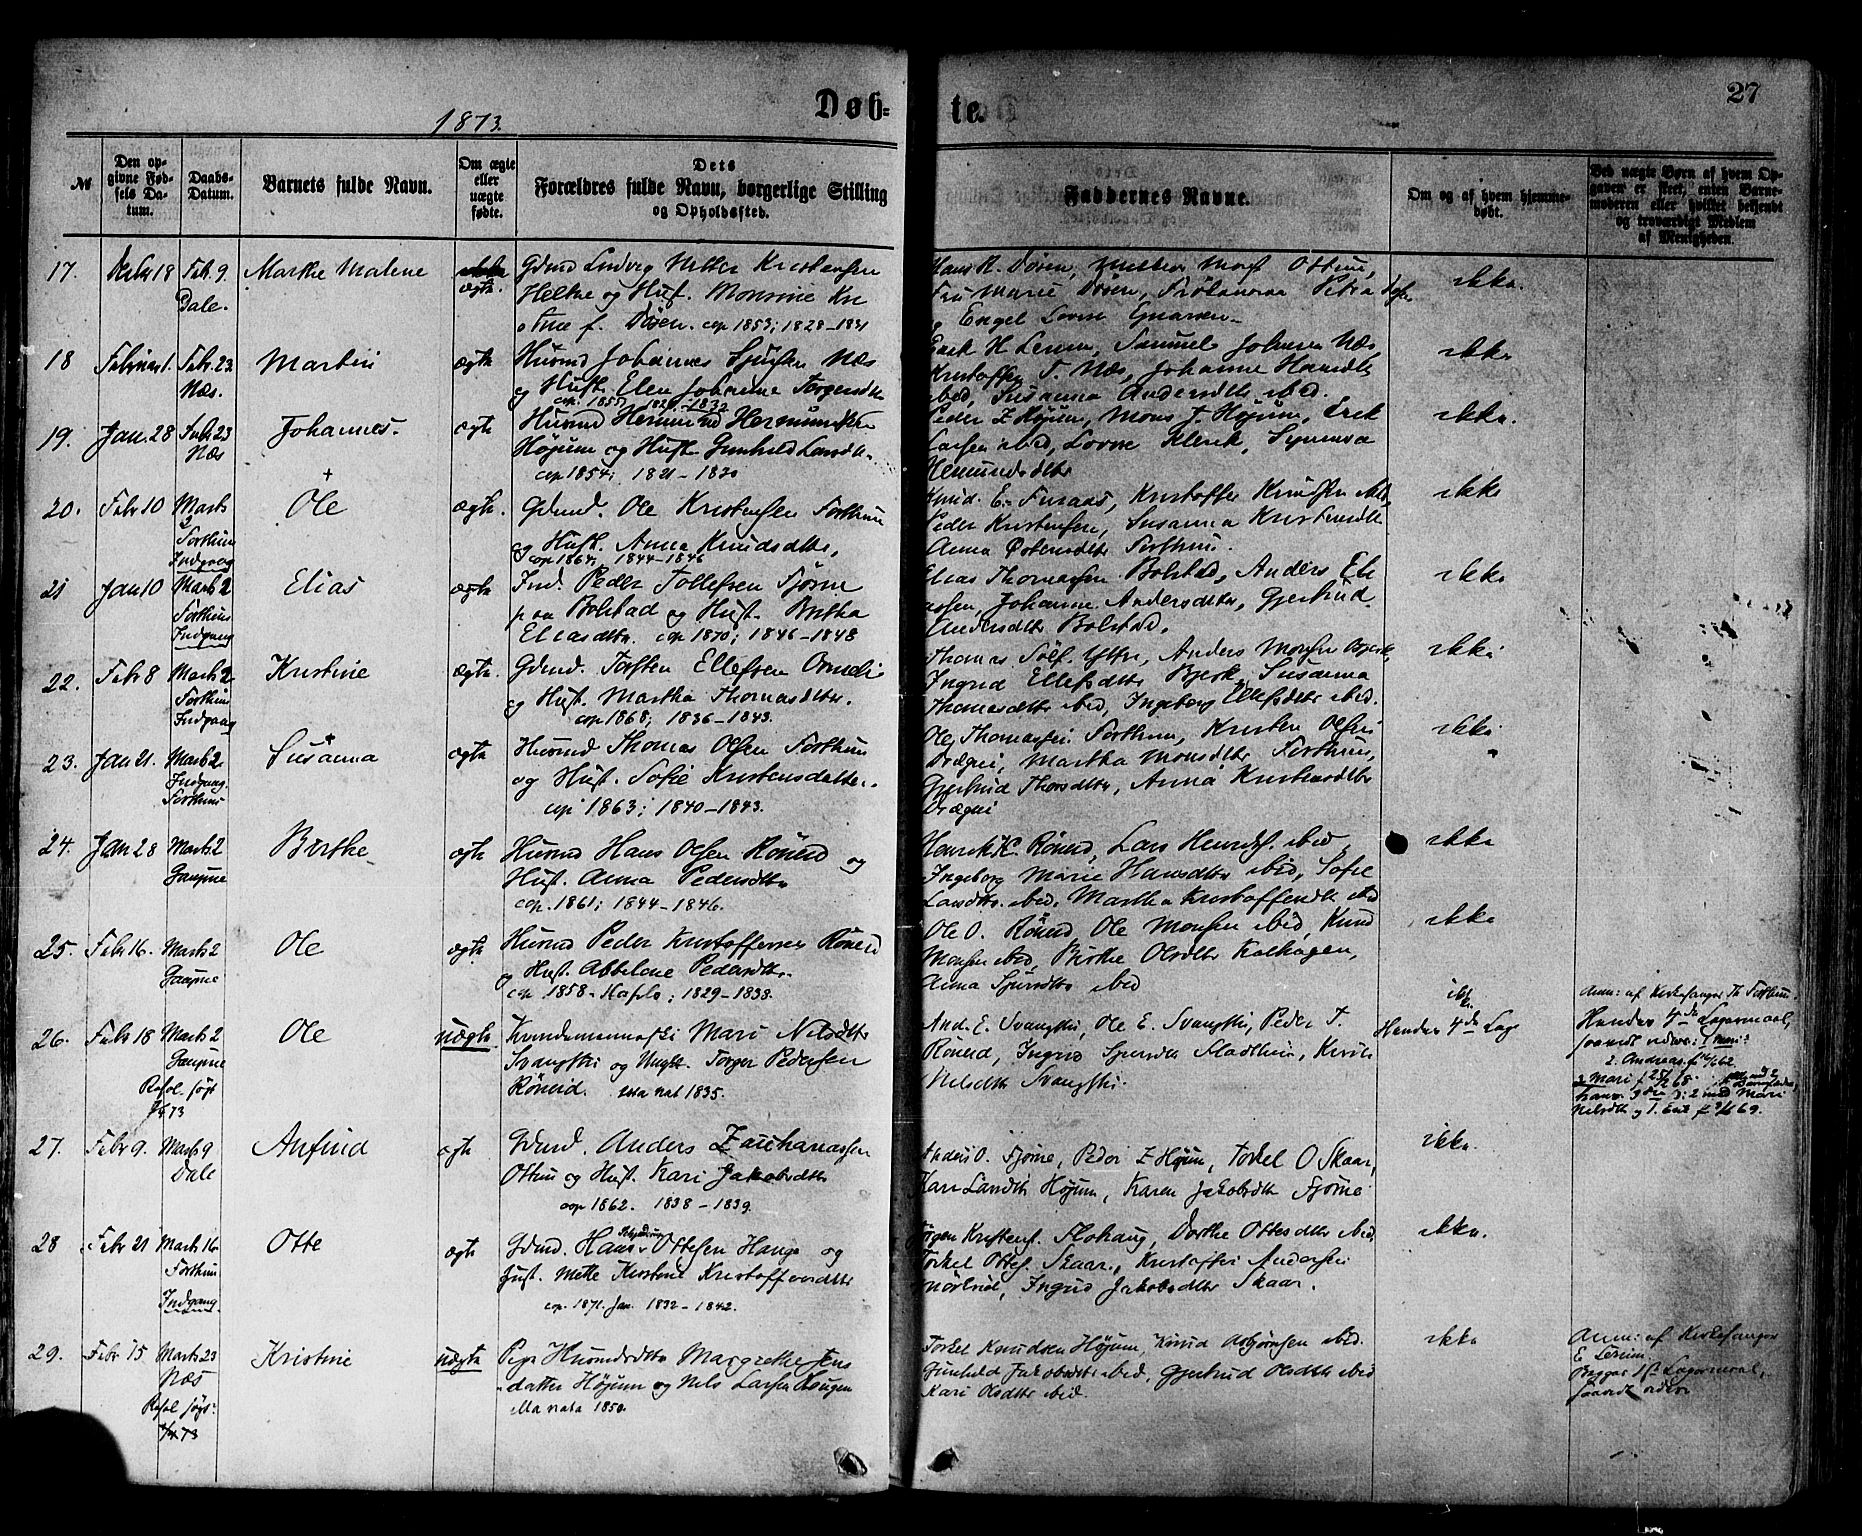 Døb=
te.
27
1873.
№
Den op-
givne Fød-
sels Da-
tum.
Daabs-
Datum.
Barnets fulde Navn.
Om ægte
eller
uægte
fødte.
Dets
Forældres fulde Navn, borgerlige Stilling
og Opholdssted.
Faddernes Navne.
Om og af hvem hjemme-
døbt.
Ved uægte Børn af hvem Op-
gaven er skeet, enten Barne-
moderen eller hvilket bekjendt
og troværdigt Medlem
af Menigheden.
17.
18
Febr. 9
Dale.
Marthe Malene
ægte
Gdmd Ludvig
Helme og Hust. Monsine
f. Døsen. cop 1853; 1828-1831
Hans H. Døsen,
Fru Marie Døsen, Frøkenerne Petra
Engel Lovise
ikke.
18
Februar 1.
Febr. 23.
Næs.
Martin
ægte
Husmd Johannes Sjursen Næs
og Hustr. Elen Johanne Torgersdtr
cop. 1855 1832
H Lerum, Samuel Johnsen Næs,
Kristoffer T. Næs, Johanne
ibid, Susanna Andersdtr ibid.
ikke
19.
Jan. 28
Febr 23
Næs
Johannes.
+
ægte
Husmd Hermund Hermundsen
Høyum og Hust. Gunhild Larsdtr.
cop 1854; 1821-1830
Peder Z Høyum, Mons J. Høyum, Erik
Larsen ibid, Lovise Klerk, Synneva
Hermundsdtr
ikke.
20.
Febr 10
Marts
2
Forthun
Indgang
Ole
ægte.
Gdmd. Ole Kristensen Forthun
og Hust. Anna Knudsdtr,
cop 1864; 1844-1846
Knud. E. Furaas, Kristoffer Knudsen ibid,
Peder Kristensen, Susanna Kristensdtr
Anna Østensdtr Forthun.
ikke
21
Jan 10
Marts 2
Forthun
Indgang
Elias
ægte
Ind. Peder Tollefsen Fjørne
paa Bolstad og Hust. Brita
Eliasdtr. cop 1870; 1846-1848
Elias Thomassen Bolstad, Anders Eli
assen, Johanne Andersdtr, Gjertrud
Andersdtr Bolstad.
ikke
22.
Febr 8
Marts 2
Forthun
Indgang
Kristine
ægte.
Gdmd. Torsten Ellefsen Ormelid
og Hust. Martha Thomasdtr.
cop 1868; 1836-1843.
Thomas Solf. Yttri, Anders Monsen Bjerk,
Ingrid Ellefsdtr Bjerk, Susanna
Thomasdtr ibid, Ingeborg Ellefsdtr ibid.
ikke
23.
Jan 21.
Marts 2
Indgang
Forthun
Susanna
ægte
Husmd Thomas Olsen Forthun
og Hust. Sofie Kristensdatter.
cop 1863; 1840-1843.
Ole Thomassen Forthun, Kristen Olsen
Drægni, Martha Monsdtr Forthun,
Gjertrud Thorsdtr, Anna Kristensdtr
Drægni
ikke
24.
Jan 28
Marts 2
Gaupne
Berthe
ægte
Husmd Hans Olsen Røneid og
Hust. Anna Pedersdtr
cop. 1861; 1844-1846.
Henrik K. Røneid, Lars Henrids. ibid,
Ingeborg Marie Hansdtr ibid, Sofie
Larsdtr. ibid, Martha Kristoffersdtr ibid
ikke
25.
Febr 16.
Marts 2
Gaupne
Ole
ægte
Husmd Peder Kristoffersen Røneid
og Hust. Abbelone Pedersdtr.
cop 1858 - Hafslo; 1829-1838.
Ole O. Røneid, Ole Monsen ibid, Knud
Monsen ibid, Birthe Olsdtr Kalhagen,
Anna Sjursdtr ibid
ikke
26.
Febr 18
Marts 2
Gaupne
Rafol. søgt
73
Ole
uægte
Kvindemenneske Mari Nilsdtr
Svangstu og Ungk. Torger Pedersen
Røneid. nat 1835.
And. E. Svangstu, Ole E. Svangstu, Peder T.
Røneid, Ingrid Sjursdtr Stadheim, Kari
Nilsdtr Svangstu.
ikke
Hendes 4de Lag
Anm: af Kirkesanger Th Forthun.
Hendes 4de Lagermaal,
2. Andreas f. 62
3 Mari f 25/ 68.
hans 3de 2 med Mari
Nilsdtr og 1. 69.
27.
Febr 9.
Marts 9
Dale
Anfind
ægte
Gdmd. Anders Zachariassen
Ottum og Hust. Kari Jakobsdtr
cop 1862. 1838-1839.
Anders O. Fjørne, Peder Z Høyum, Torkel O Skaar,
Kari Larsdtr Høyum, Karen Jakobsdtr Fjørne
ikke.
28
Febr 21
Marts 16
Forthun
Indgang
Otte
ægte
Gdmd. Hans Ottesen Hauge og
Hust. Mette Kirstine Kristoffersdtr
cop. 1871. Jan. 1832-1842.
Jørgen Kristens. Flohaug, Dorthe Ottesdtr ibid,
Torkel Ottes. Skaar, Kristoffer Andersen
Ingrid Jakobsdtr Skaar.
ikke.
29.
Febr 15
Marts 23
Næs
Rafol søgt
73
Kristine
uægte
Pige Margrethe Jens
datter Høyum og Nils Larsen Haugen
nata 1850.
Torkel Knudsen Høyum, Knud Asbjørnsen ibid.
Gunhild Jakobsdtr ibid, Gjertrud Olsdtr ibid
Kari Olsdtr ibid.
ikke
Anm: af Kirkesanger
E. Lerum.
Begges 1ste Lagermaal,